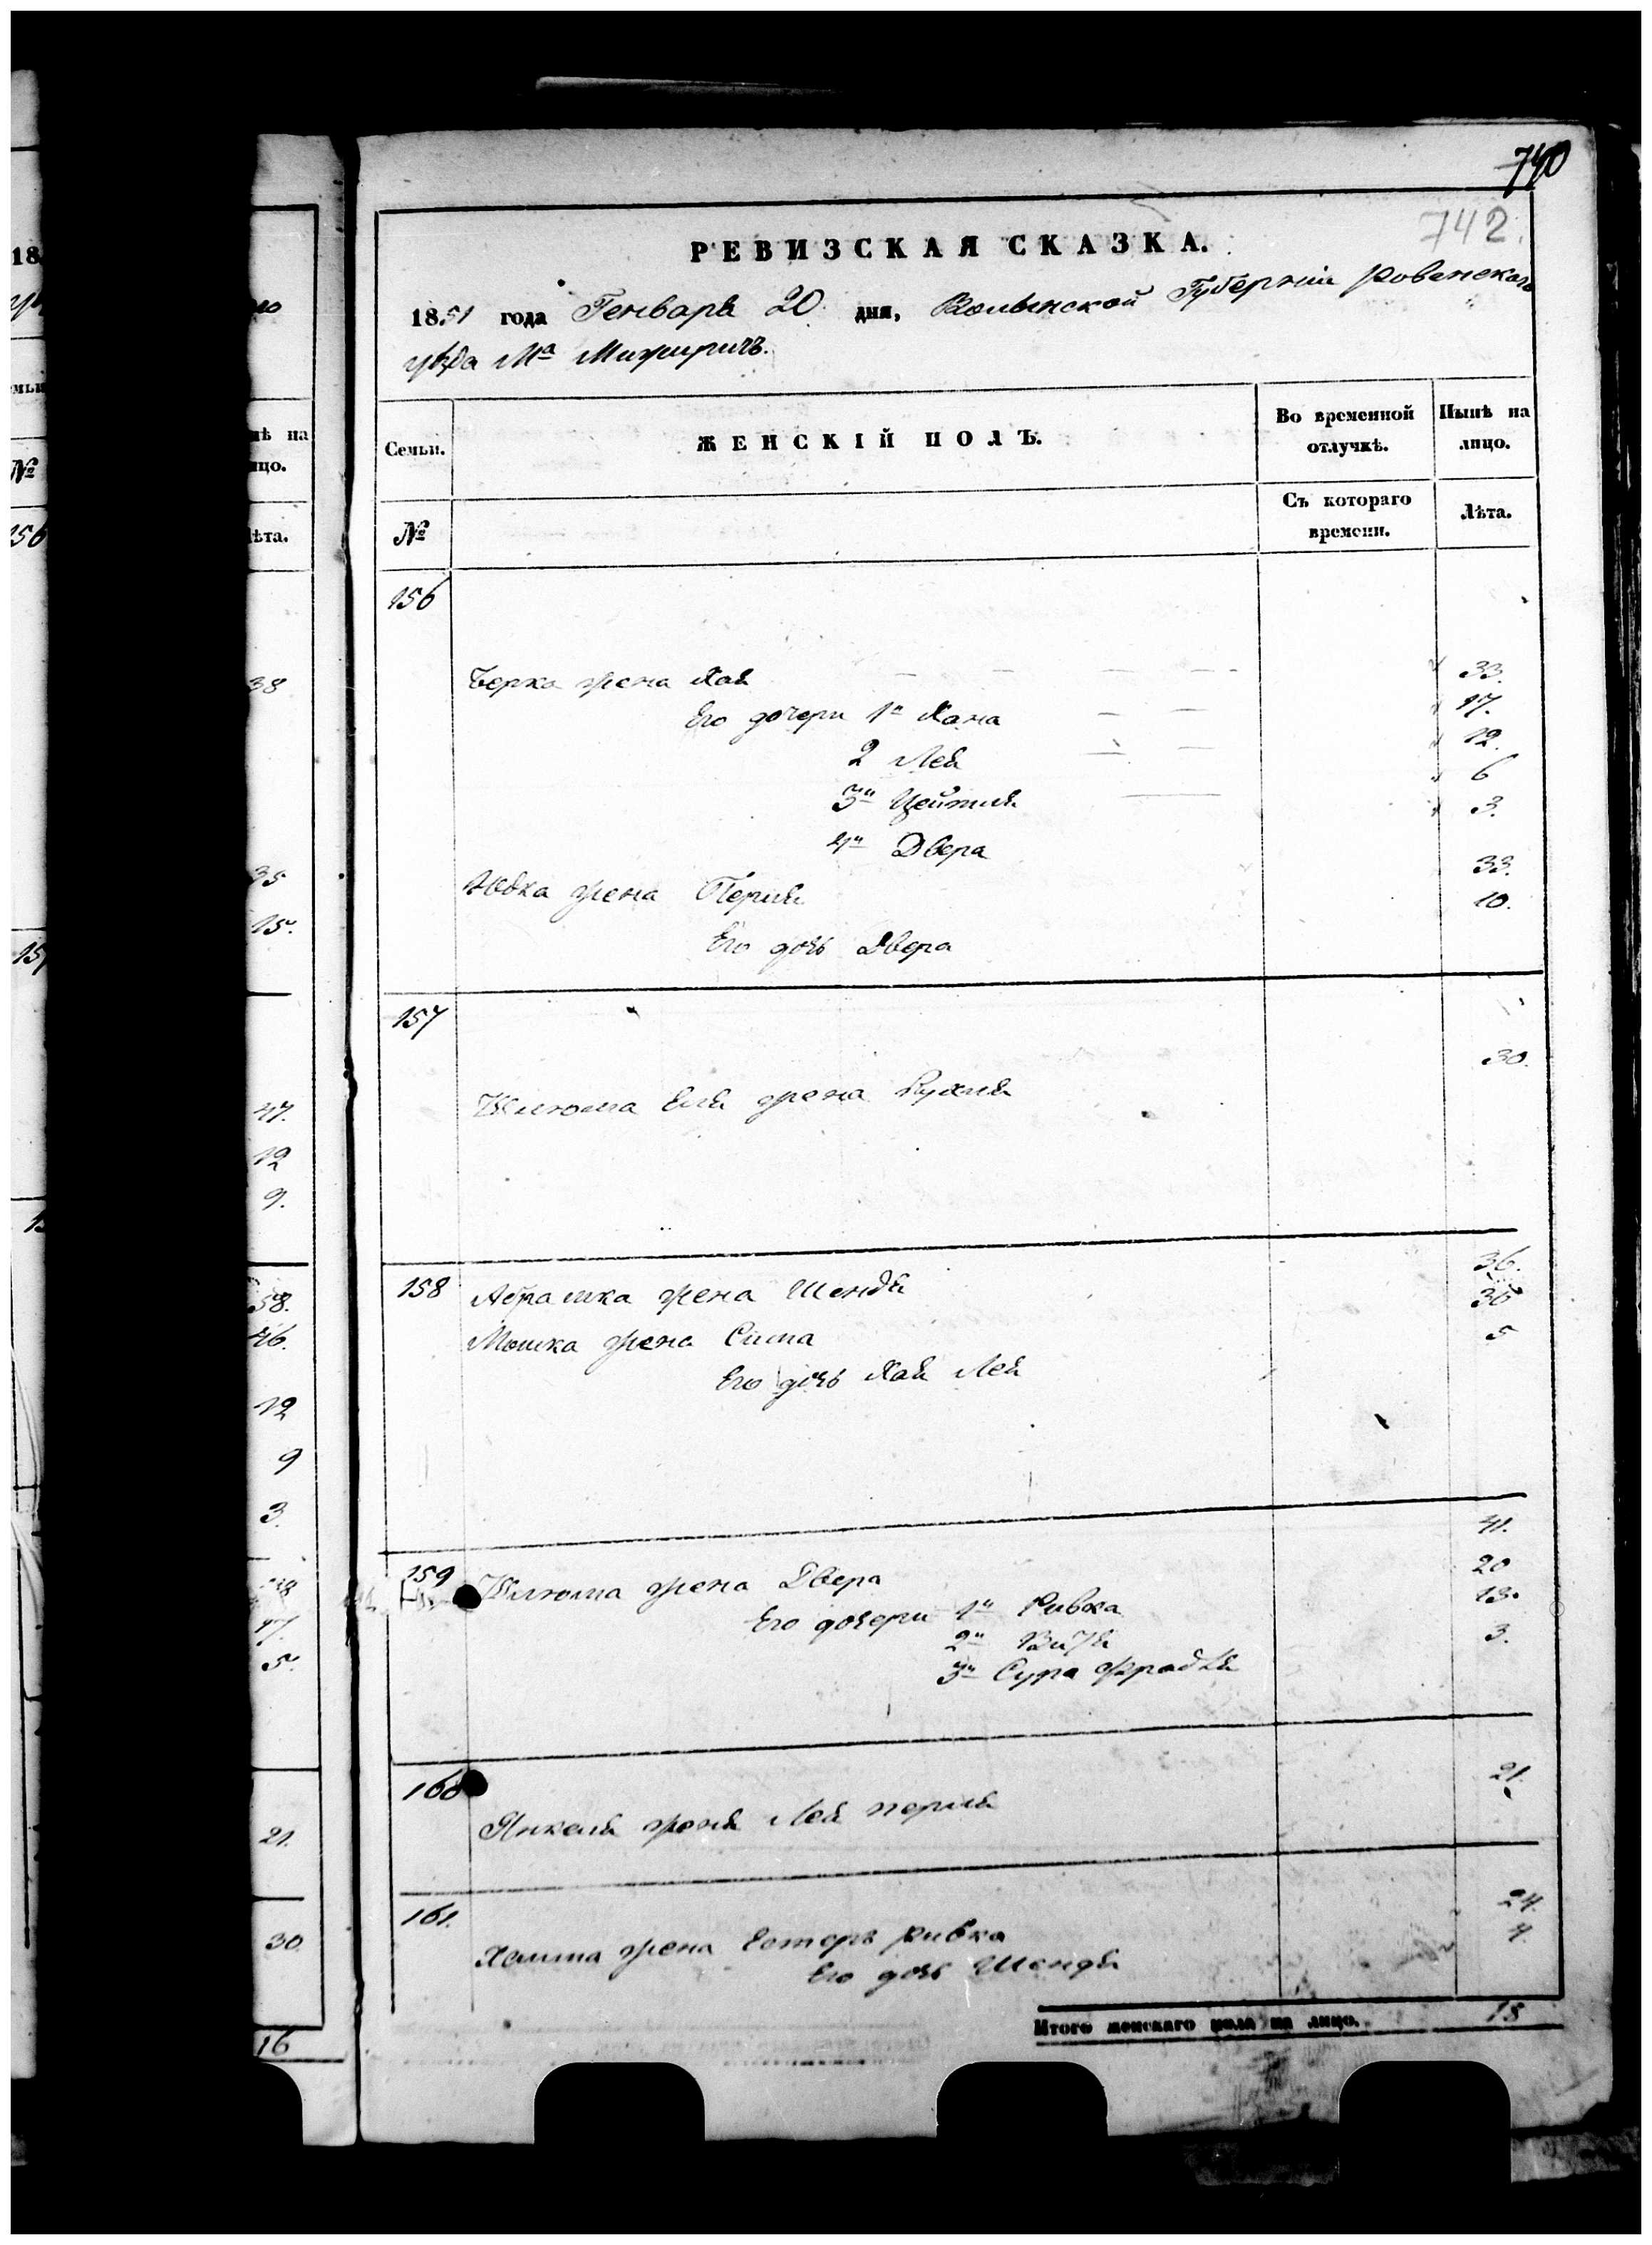 740
742.
РЕВИЗСКАЯ СКАЗКА.
1851 года Генваря 20 дня, Волынской Губерніи Ровенского
уѣзда Мᵃ Межиричъ.
Семьи.
ЖЕНСКІЙ ПОЛЪ.
Во временной отлучкѣ.
Нынѣ на лицо.
№
Съ котораго времени.
Лѣта.
156
Берка жена Хая 33.
Его дочери 1я Хана 17.
2 Лея 12.
3я Цейтля 6
4я Двера 3.
Жена Перля 33.
Его дочь Двера 10.
157
Шлиома жена Рухля 30.
158 Абрамка жена Шендя 36.
Мошка жена Сима 30
Его дочь Хая Лея 5
159 Шлиома жена Двера 41.
Его дочери 1я Ривка 20
2я 13.
3я Сура Фрадя 3.
160
Янкеля жена Лея Перля 21.
161.
жена Естеръ Ривка 24.
Его дочь Шендя 4.
Итого женскаго пола на лицо. 18
18
156
38
35
15.
47.
12
9.
58.
46.
12
9
3.
5.
21.
30.
16